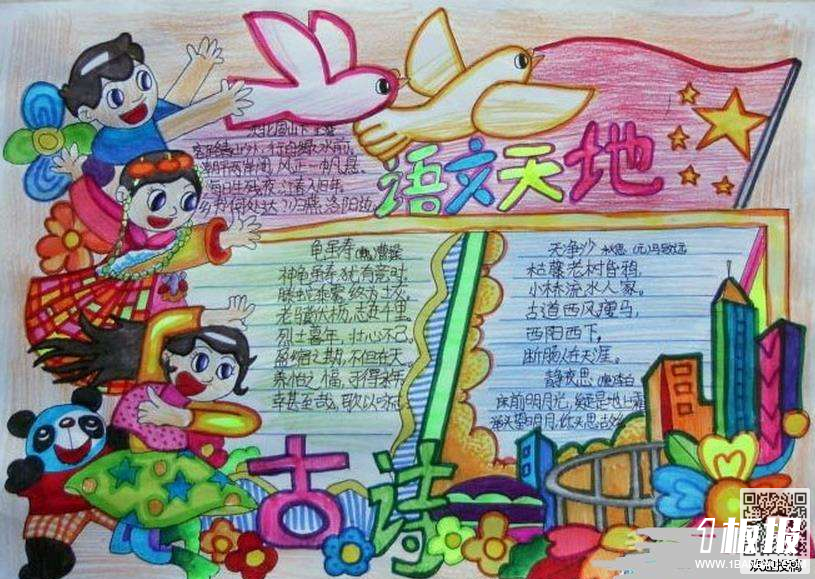 语文天地
次北固山下 王湾
行舟绿水前
风正一帆悬。
海日生残夜,江春入旧年。
乡书何处达?归雁洛阳边
龟虽寿 曹操
神龟虽寿,犹有竟时。
腾蛇乘雾,终为土灰。
老骥伏枥,志在千里
烈士暮年,壮心不已。
盈缩之期,不但在天
养怡之福,可得永年
幸甚至哉,歌以咏志
天净沙 秋思 (元)马致远
枯藤老树昏鸦,
小桥流水人家。
古道西风瘦马,
西阳西下,
断肠人在天涯。
静夜思 (唐)李白
床前明月光,疑是地上霜
举头望明月,低头思故乡
古诗
1板报
WWW.1BANBAO.COM
欢迎投稿